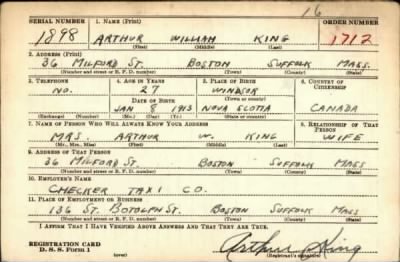 16
SERIAL NUMBER 1. NAME (Print) ORDER NUMBER
1898 ARTHUR WILLIAM KING 1712
(First) (Middle) (Last)
2. ADDRESS (Print)
36 MILFORD ST. BOSTON SUFFOLK MASS.
(Number and street or R. F. D. number) (Town) (County) (State)
3. TELEPHONE 4. AGE IN YEARS 5. PLACE OF BIRTH 6. COUNTRY OF CITIZENSHIP
NO. 27 WINDSOR
DATE OF BIRTH (Town or county)
JAN 8 1913 NOVA SCOTIA CANADA
(Exchange) (Number) (Mo.) (Day) (Yr.) (State or country)
7. NAME OF PERSON WHO WILL ALWAYS KNOW YOUR ADDRESS 8. RELATIONSHIP OF THAT PERSON
MRS. ARTHUR W. KING WIFE
(Mr., Mrs., Miss) (First) (Middle) (Last)
9. ADDRESS OF THAT PERSON
36 MILFORD ST. BOSTON SUFFOLK MASS
(Number and street or R. F. D. number) (Town) (County) (State)
10. EMPLOYER'S NAME
CHECKER TAXI CO.
11. PLACE OF EMPLOYMENT OR BUSINESS
136 ST. BOTOLPH ST. BOSTON SUFFOLK MASS
(Number and street or R. F. D. number) (Town) (County) (State)
I AFFIRM THAT I HAVE VERIFIED ABOVE ANSWERS AND THAT THEY ARE TRUE.
REGISTRATION CARD
D. S. S. Form 1 (over) Arthur King
(Registrant's signature)